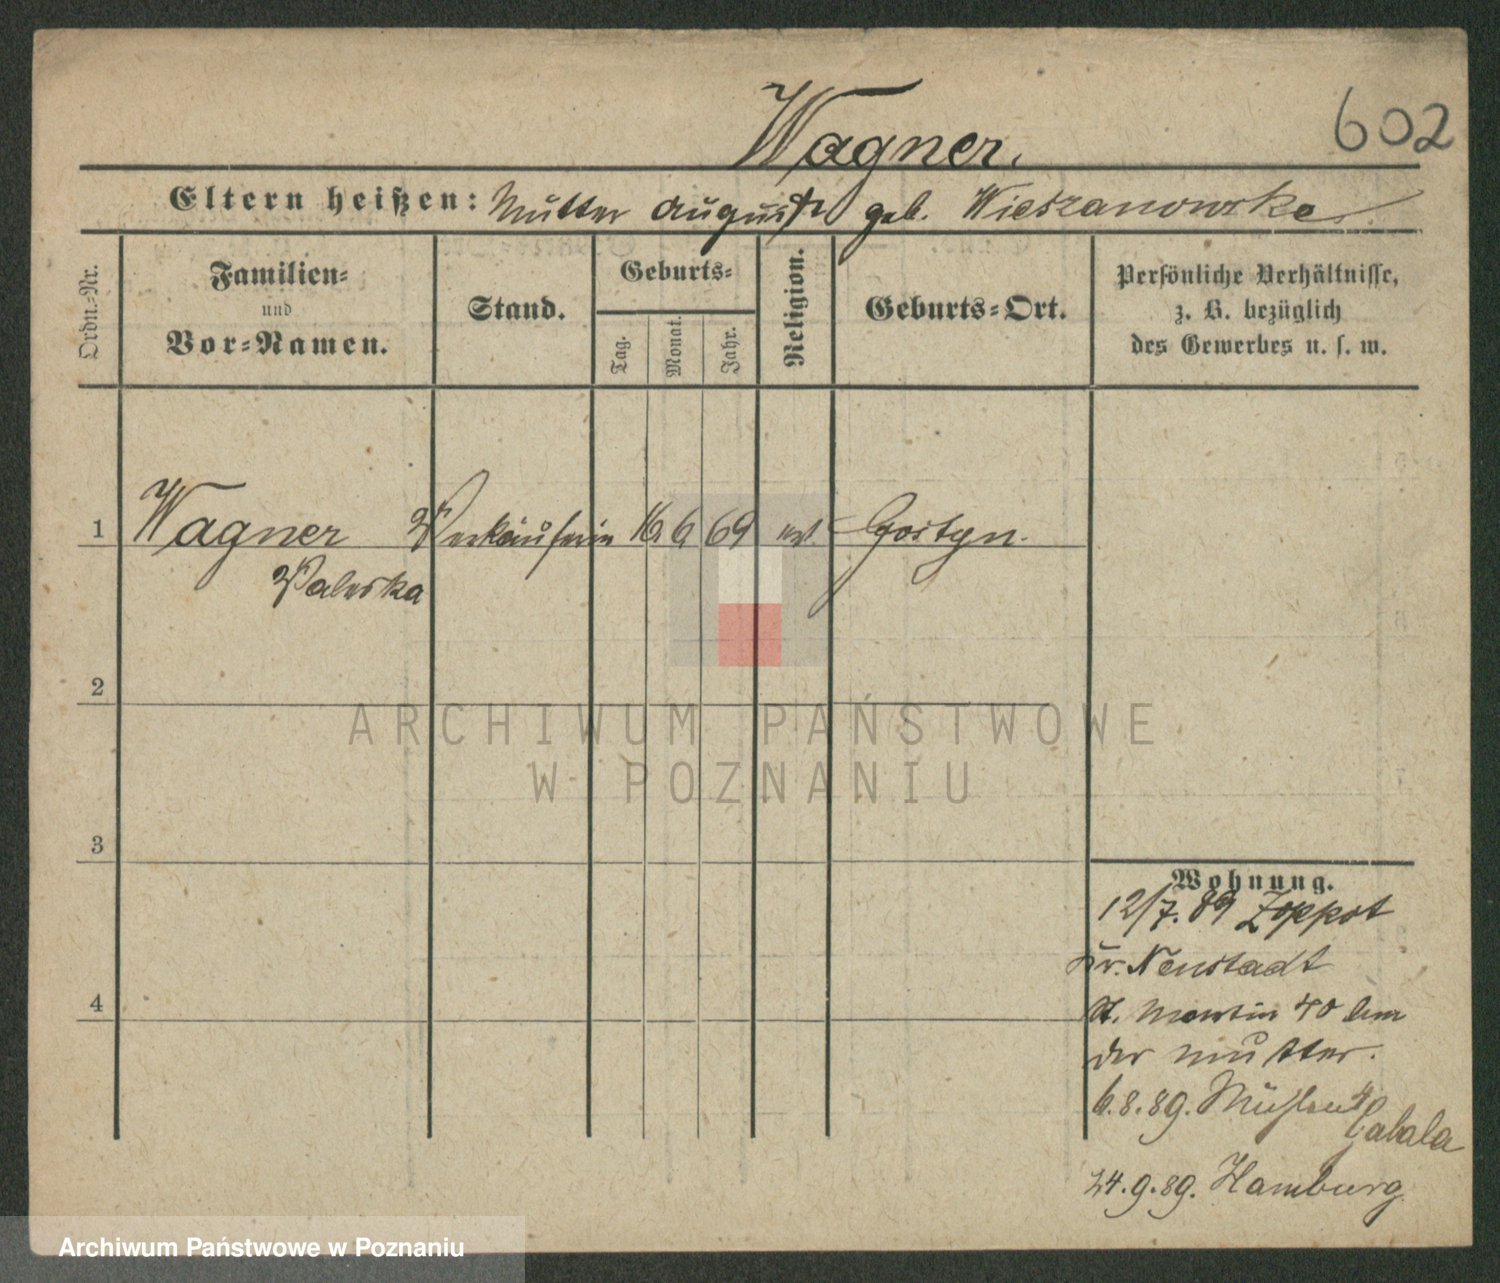 Wagner.
602
Eltern heißen: Mutter Auguste geb. Wieszanowska
Ordn.-Nr.
Familien-
und
Vor-Namen.
Stand.
Geburts-
Tag.
Monat.
Jahr.
Religion.
Geburts-Ort.
Persönliche Verhältnisse,
z. B. bezüglich
des Gewerbes u. s. w.
1 Wagner Verkäuferin 16 6 69 Gostyn.
Valeska
2
ARCHIWUM PAŃSTWOWE
W POZNANIU
3
Wohnung.
12/7. 89 Zoppot
Kr. Neustadt
4
St. Martin 40 bei
der Mutter.
6.8.89.
24.9.89. Hamburg
Archiwum Państwowe w Poznaniu